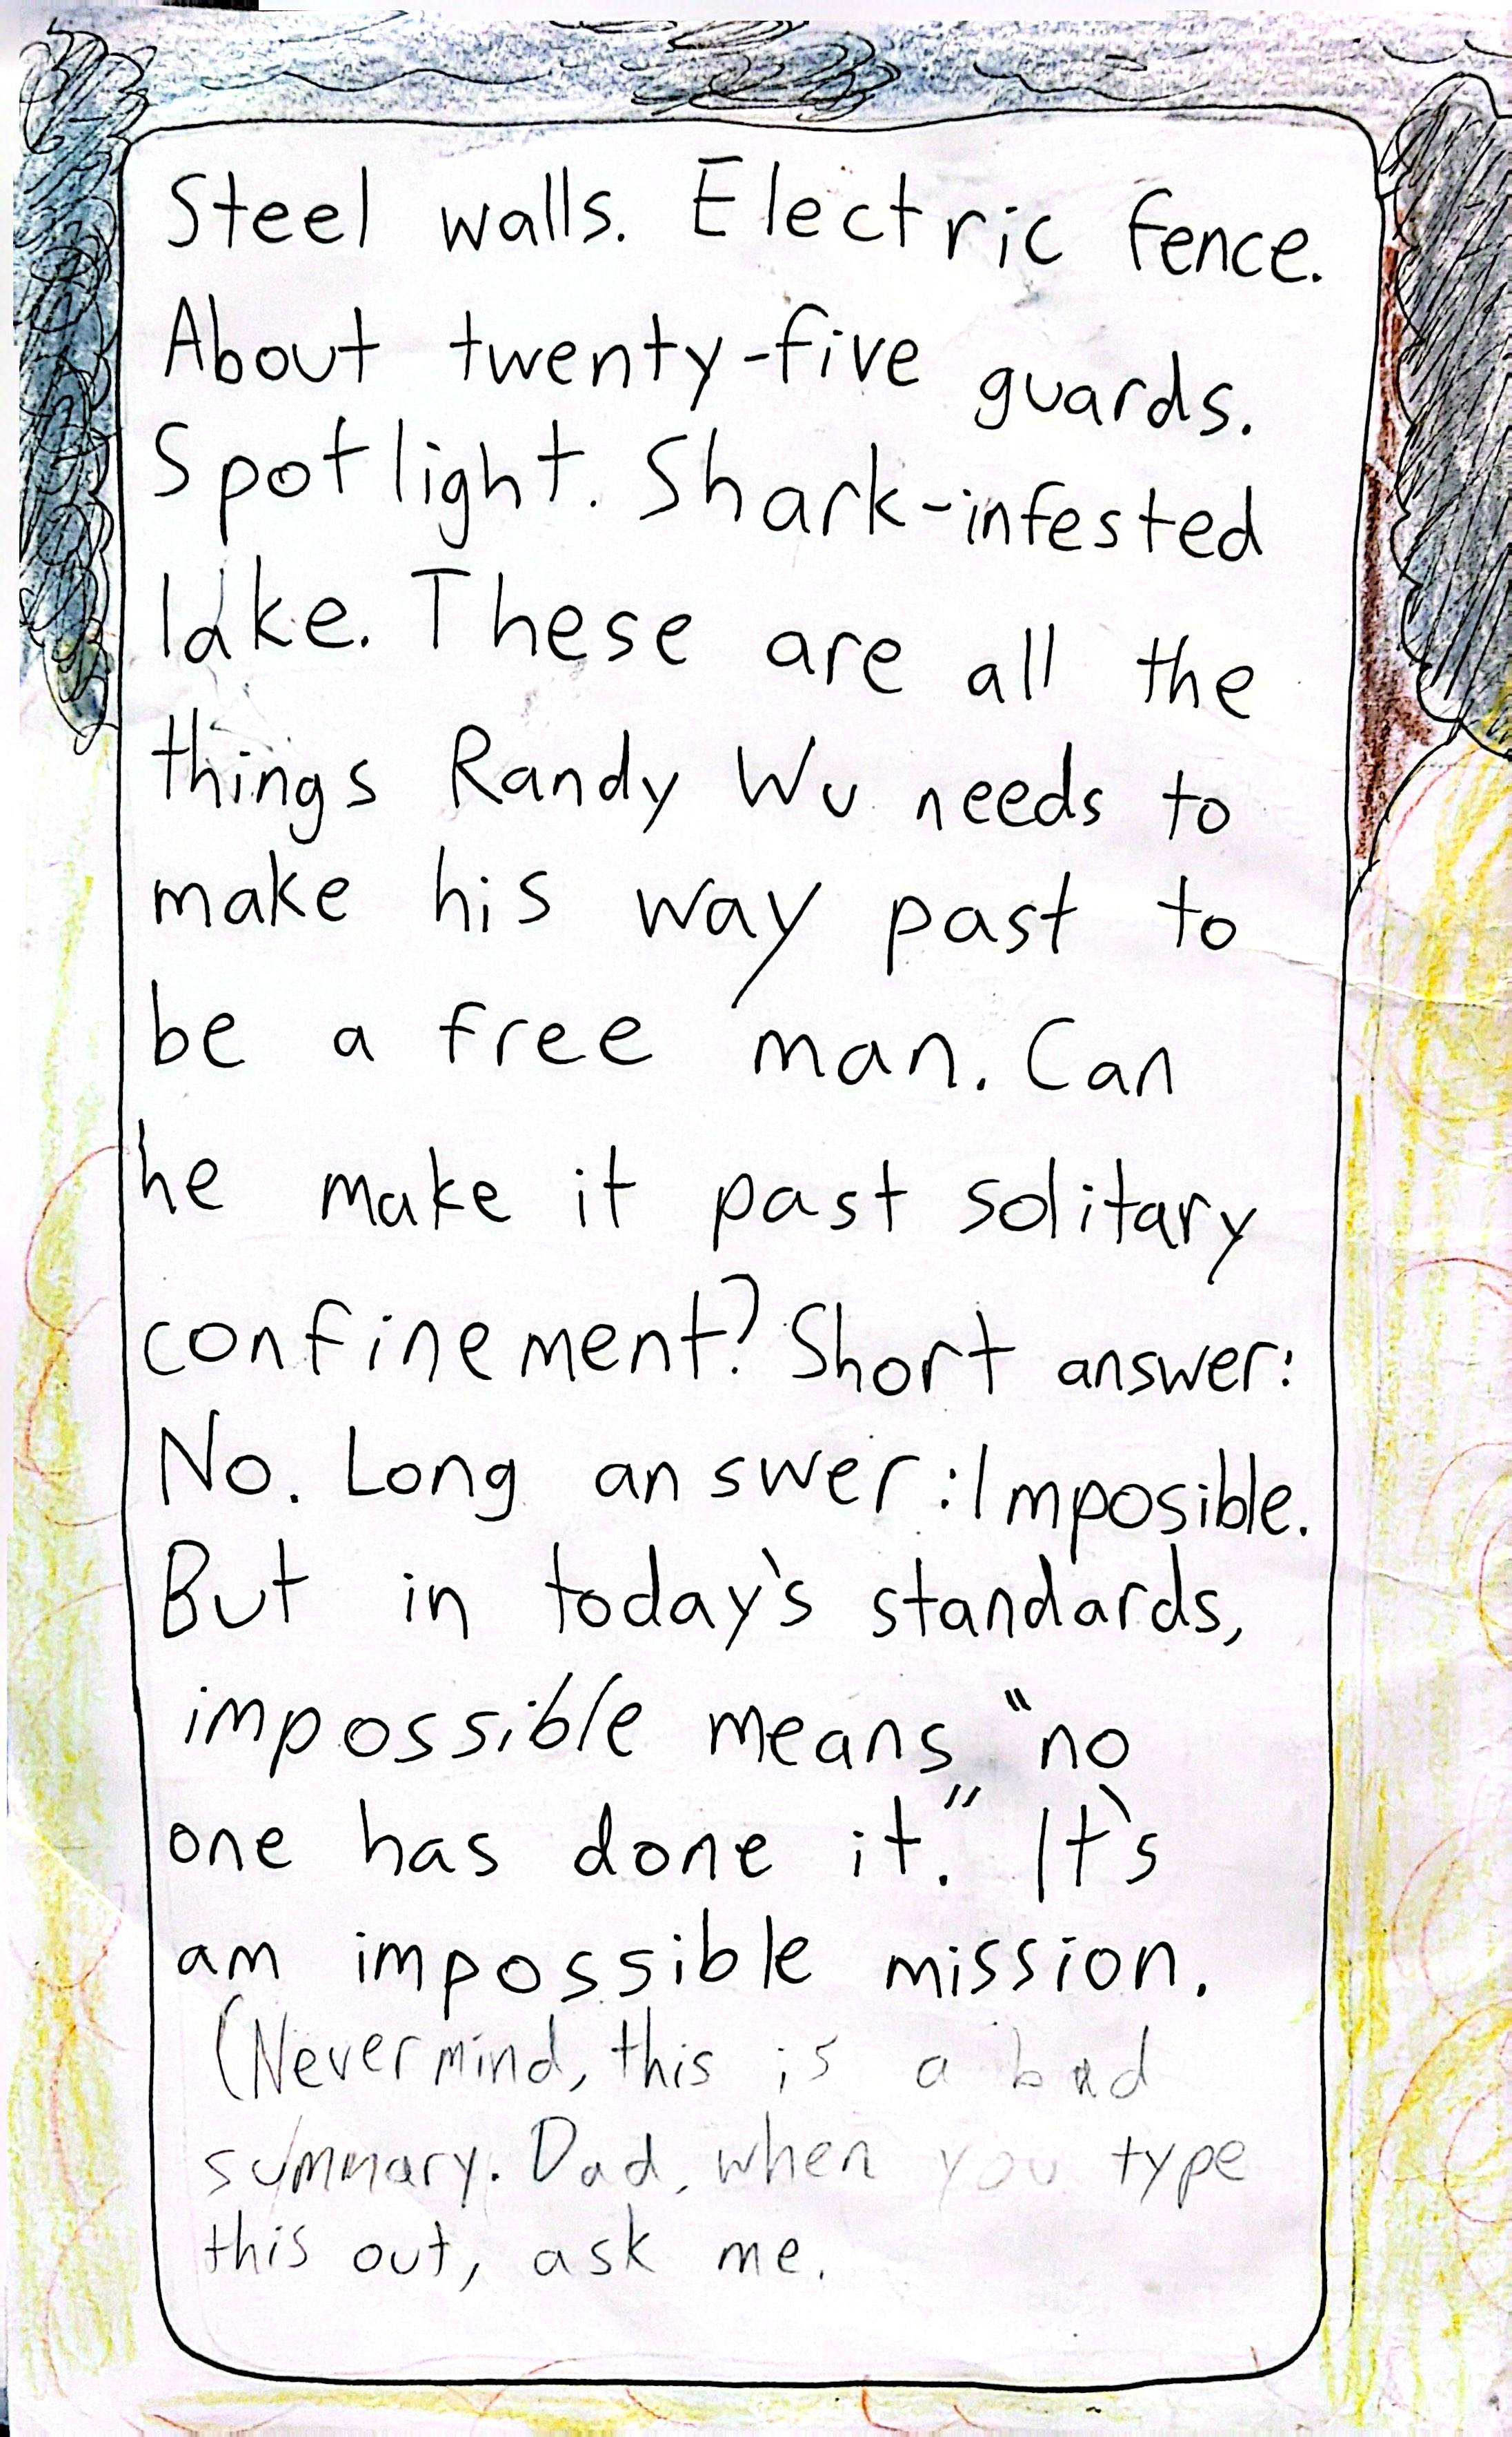 Steel walls. Electric fence.
About twenty-five guards.
Spotlight. Shark-infested
lake. These are all the
things Randy Wu needs to
make his way past to
be a free man. Can
he make it past solitary
confinement? Short answer:
No. Long answer: Imposible.
But in today's standards,
impossible means "no
one has done it." It's
am impossible mission.
(Nevermind, this is a bad
summary. Dad, when you type
this out, ask me.